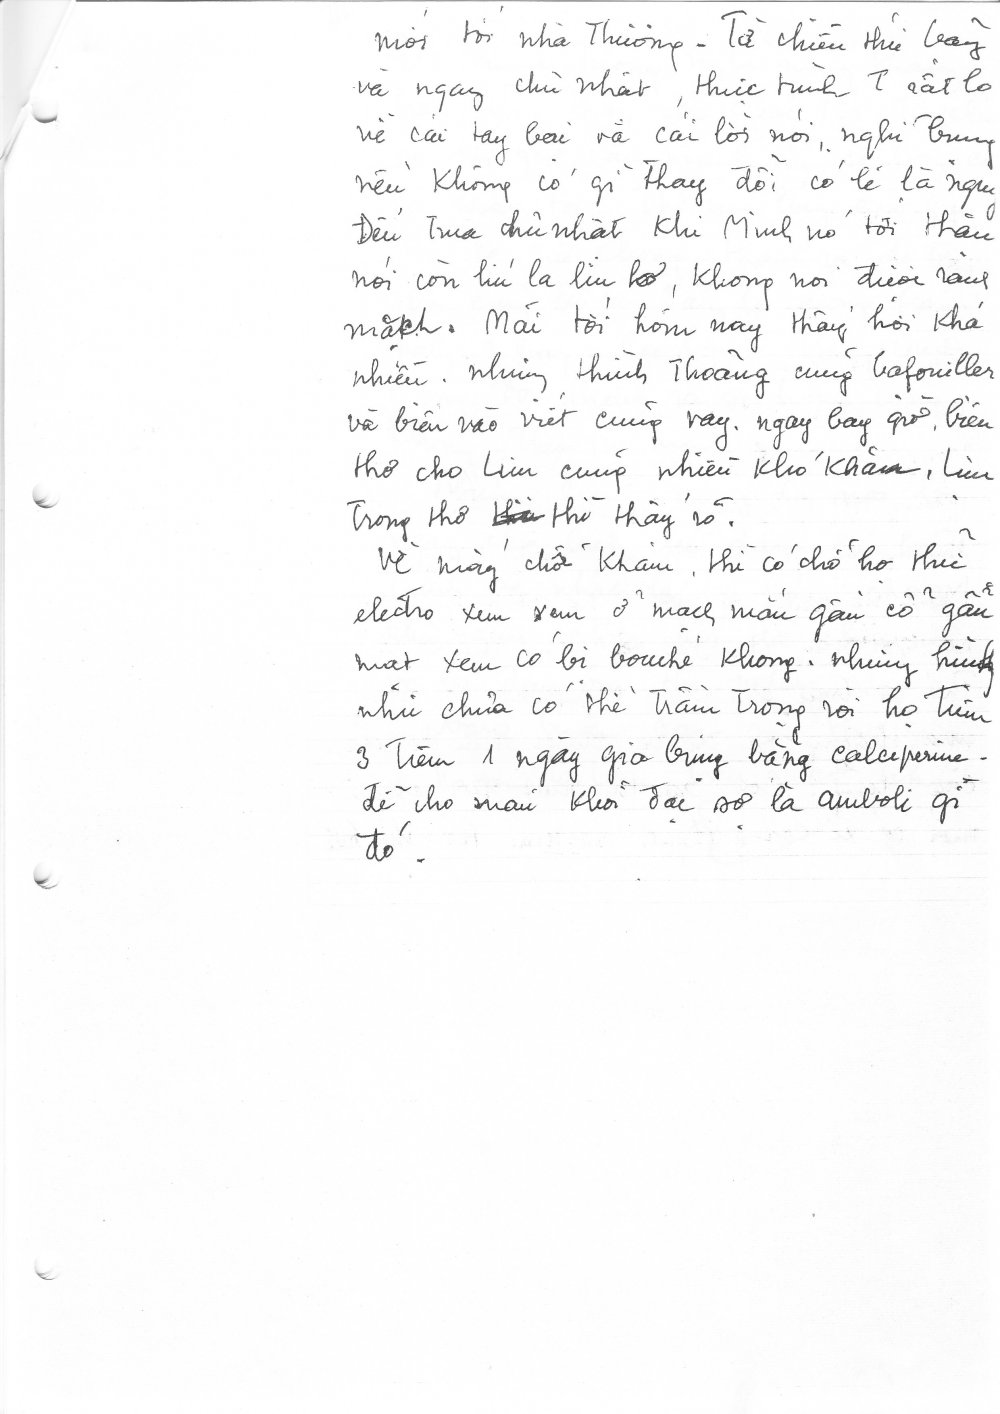 mới tới nhà Thương - Từ chiều thứ bảy
và ngay chủ nhật, thực tình T rất lo
về cái tay bại và cái lời nói, nghĩ bụng
nếu không có gì thay đổi có lẽ là nguy
Đến trưa chủ nhật khi Minh nó tới thăm
nói còn líu la líu lo, không nói được rành
mạch. Mãi tới hôm nay thấy hơi khá
nhiều. nhưng thỉnh Thoảng cũng bafouiller
và biên vào viết cũng vậy. ngay bay giờ, biên
thơ cho Lim cũng nhiều khó khăn, Lim
Trong thơ thì thấy rõ.
Về máy chỗ khám, thì có chỗ họ thử
electro xem xem ở mạch máu gần cổ gần
mat xem có bị bouché không. nhưng hình
như chưa có thể trầm trọng rồi họ Tiêm
3 Tiêm 1 ngày gio bụng bằng calciperine -
để cho mau khỏi đặc sợ là amboli gì
đó.